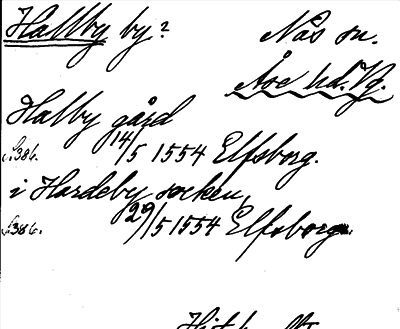 Hallby by? Nås sn.
Åse hd. Vg.
Halby gård
s. 386. 14/5 1554 Elfsborg.
i Hardeby socken,
s. 386. 29/5 1554 Elfsborg.